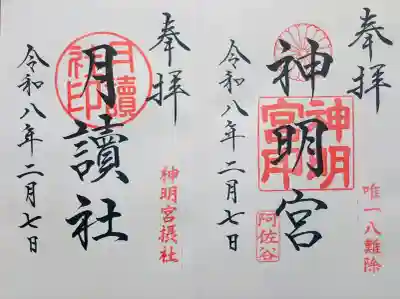 奉拝
神明宮
唯一八難除
阿佐谷
神明宮印
令和八年二月七日
奉拝
月讀社
神明宮摂社
月讀社印
令和八年二月七日